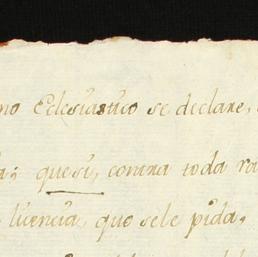 no Eclesiastico se declare,
quesi, contra toda
licencia, que sele pida,